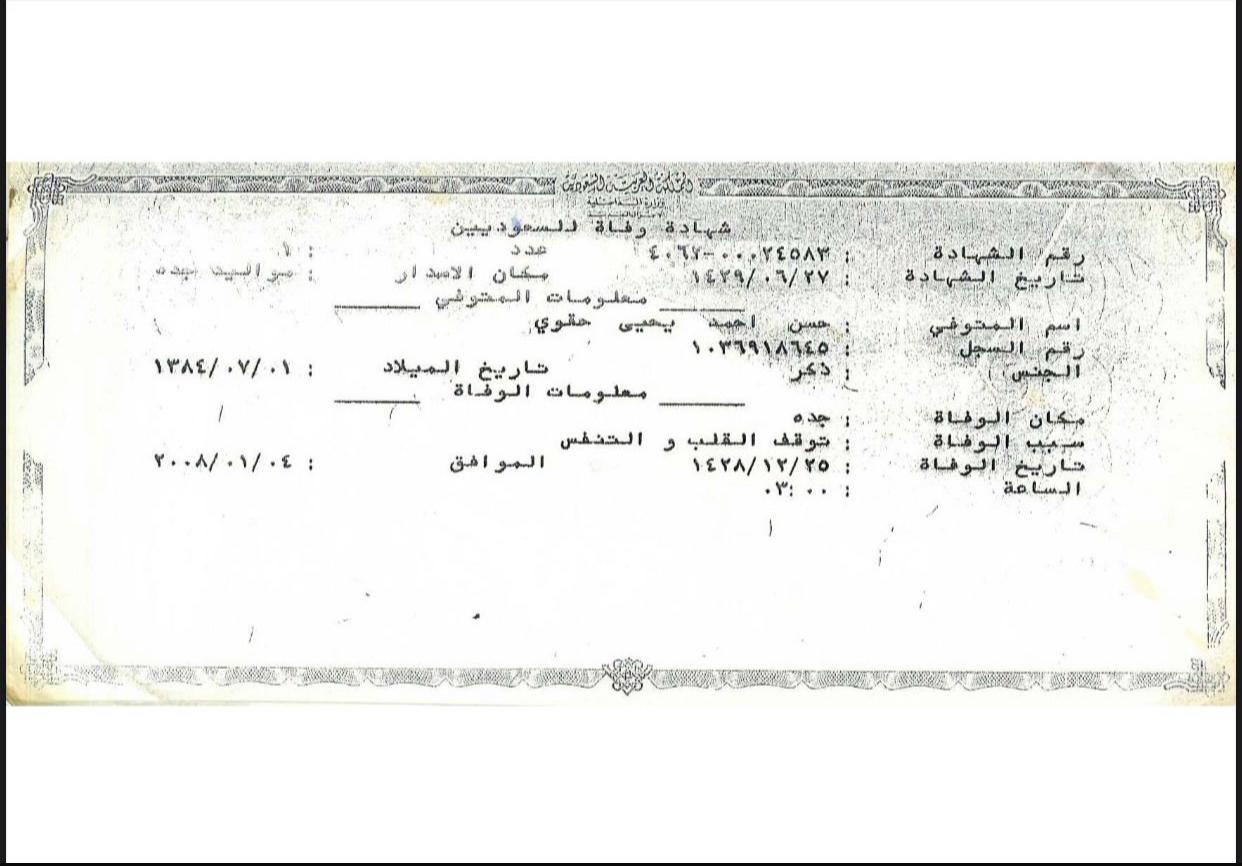 المملكة العربية السعودية
وزارة الداخلية
شهادة وفاة للسعوديين
رقم الشهادة : ٤٠٦٢-٠٠٠٢٤٥٨٣ عدد : ١
تاريخ الشهادة : ١٤٢٩/٠٦/٢٧ مكان الاصدار : مواليد جده
معلومات المتوفي
اسم المتوفي : حسن احمد يحيى حقوي
رقم السجل : ١٠٣٦٩١٨٦٤٥
الجنس : ذكر تاريخ الميلاد : ١٣٨٤/٠٧/٠١
معلومات الوفاة
مكان الوفاة : جده
سبب الوفاة : توقف القلب و التنفس
تاريخ الوفاة : ١٤٢٨/١٢/٢٥ الموافق : ٢٠٠٨/٠١/٠٤
الساعة : ٠٣:٠٠